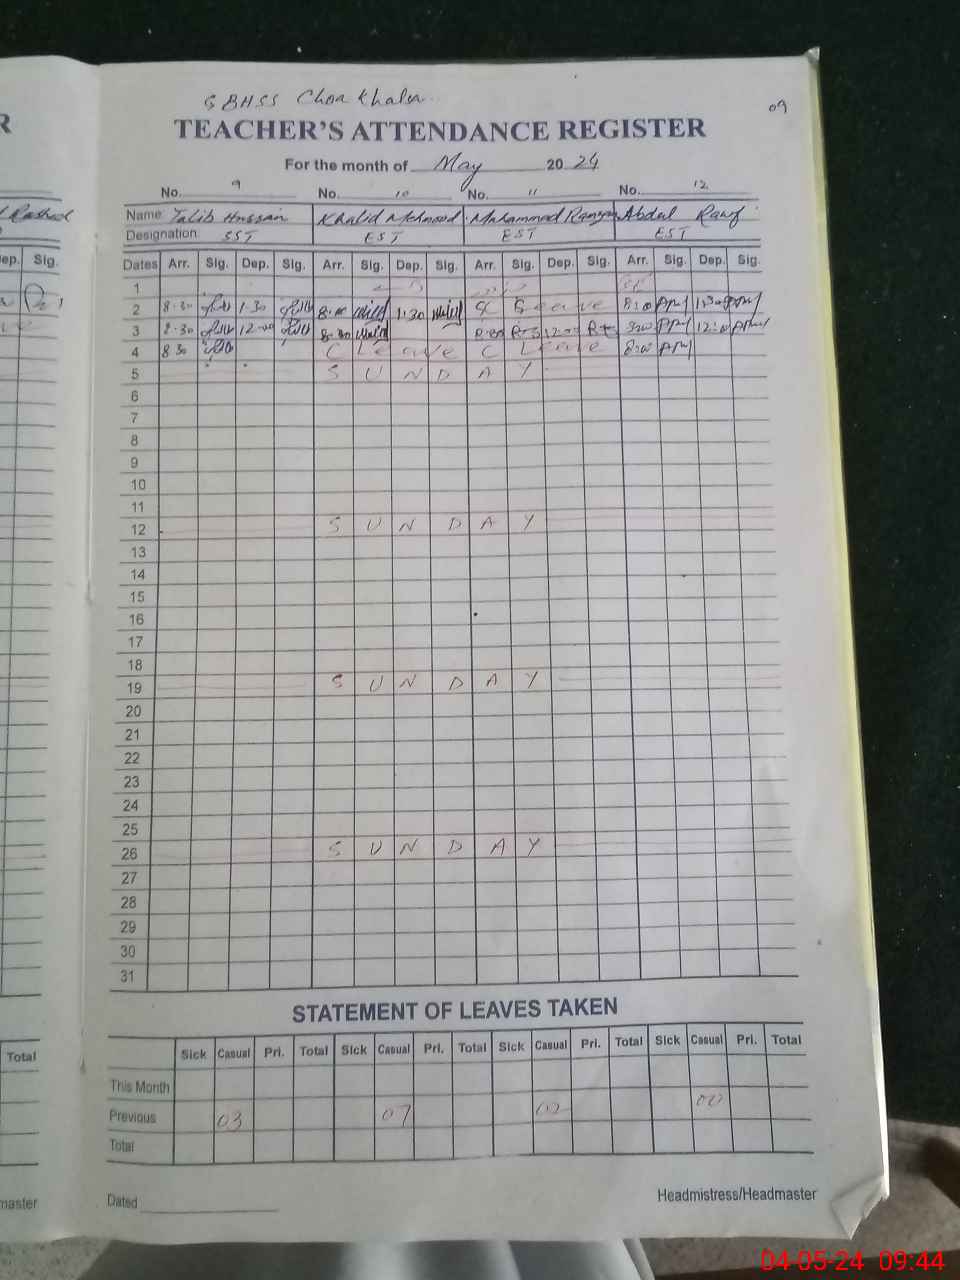 GBHSS Choa Khalsa
09
TEACHER'S ATTENDANCE REGISTER
For the month of May 2024
No. 9 No. 10 No. 11 No. 12
Name: Talib Hussain Khalid Mehmood Muhammad Abdul Rauf
Designation: SST EST EST EST
Dates Arr. Sig. Dep. Sig. Arr. Sig. Dep. Sig. Arr. Sig. Dep. Sig. Arr. Sig. Dep. Sig.
1
2 8.30 1.30 8:00 1:30 Leave 8:00 1:30
3 8.30 12-00 8:30 12:00 12:00
4 8 30 C Leave C Leave 8:00
5 S U N D A Y
6
7
8
9
10
11
12 S U N D A Y
13
14
15
16
17
18
19 S U N D A Y
20
21
22
23
24
25
26 S U N D A Y
27
28
29
30
31
STATEMENT OF LEAVES TAKEN
Sick Casual Pri. Total Sick Casual Pri. Total Sick Casual Pri. Total Sick Casual Pri. Total
This Month
Previous 03 07 02 00
Total
Dated
Headmistress/Headmaster
R
Dep. Sig.
Total
master
04-05-24 09:44